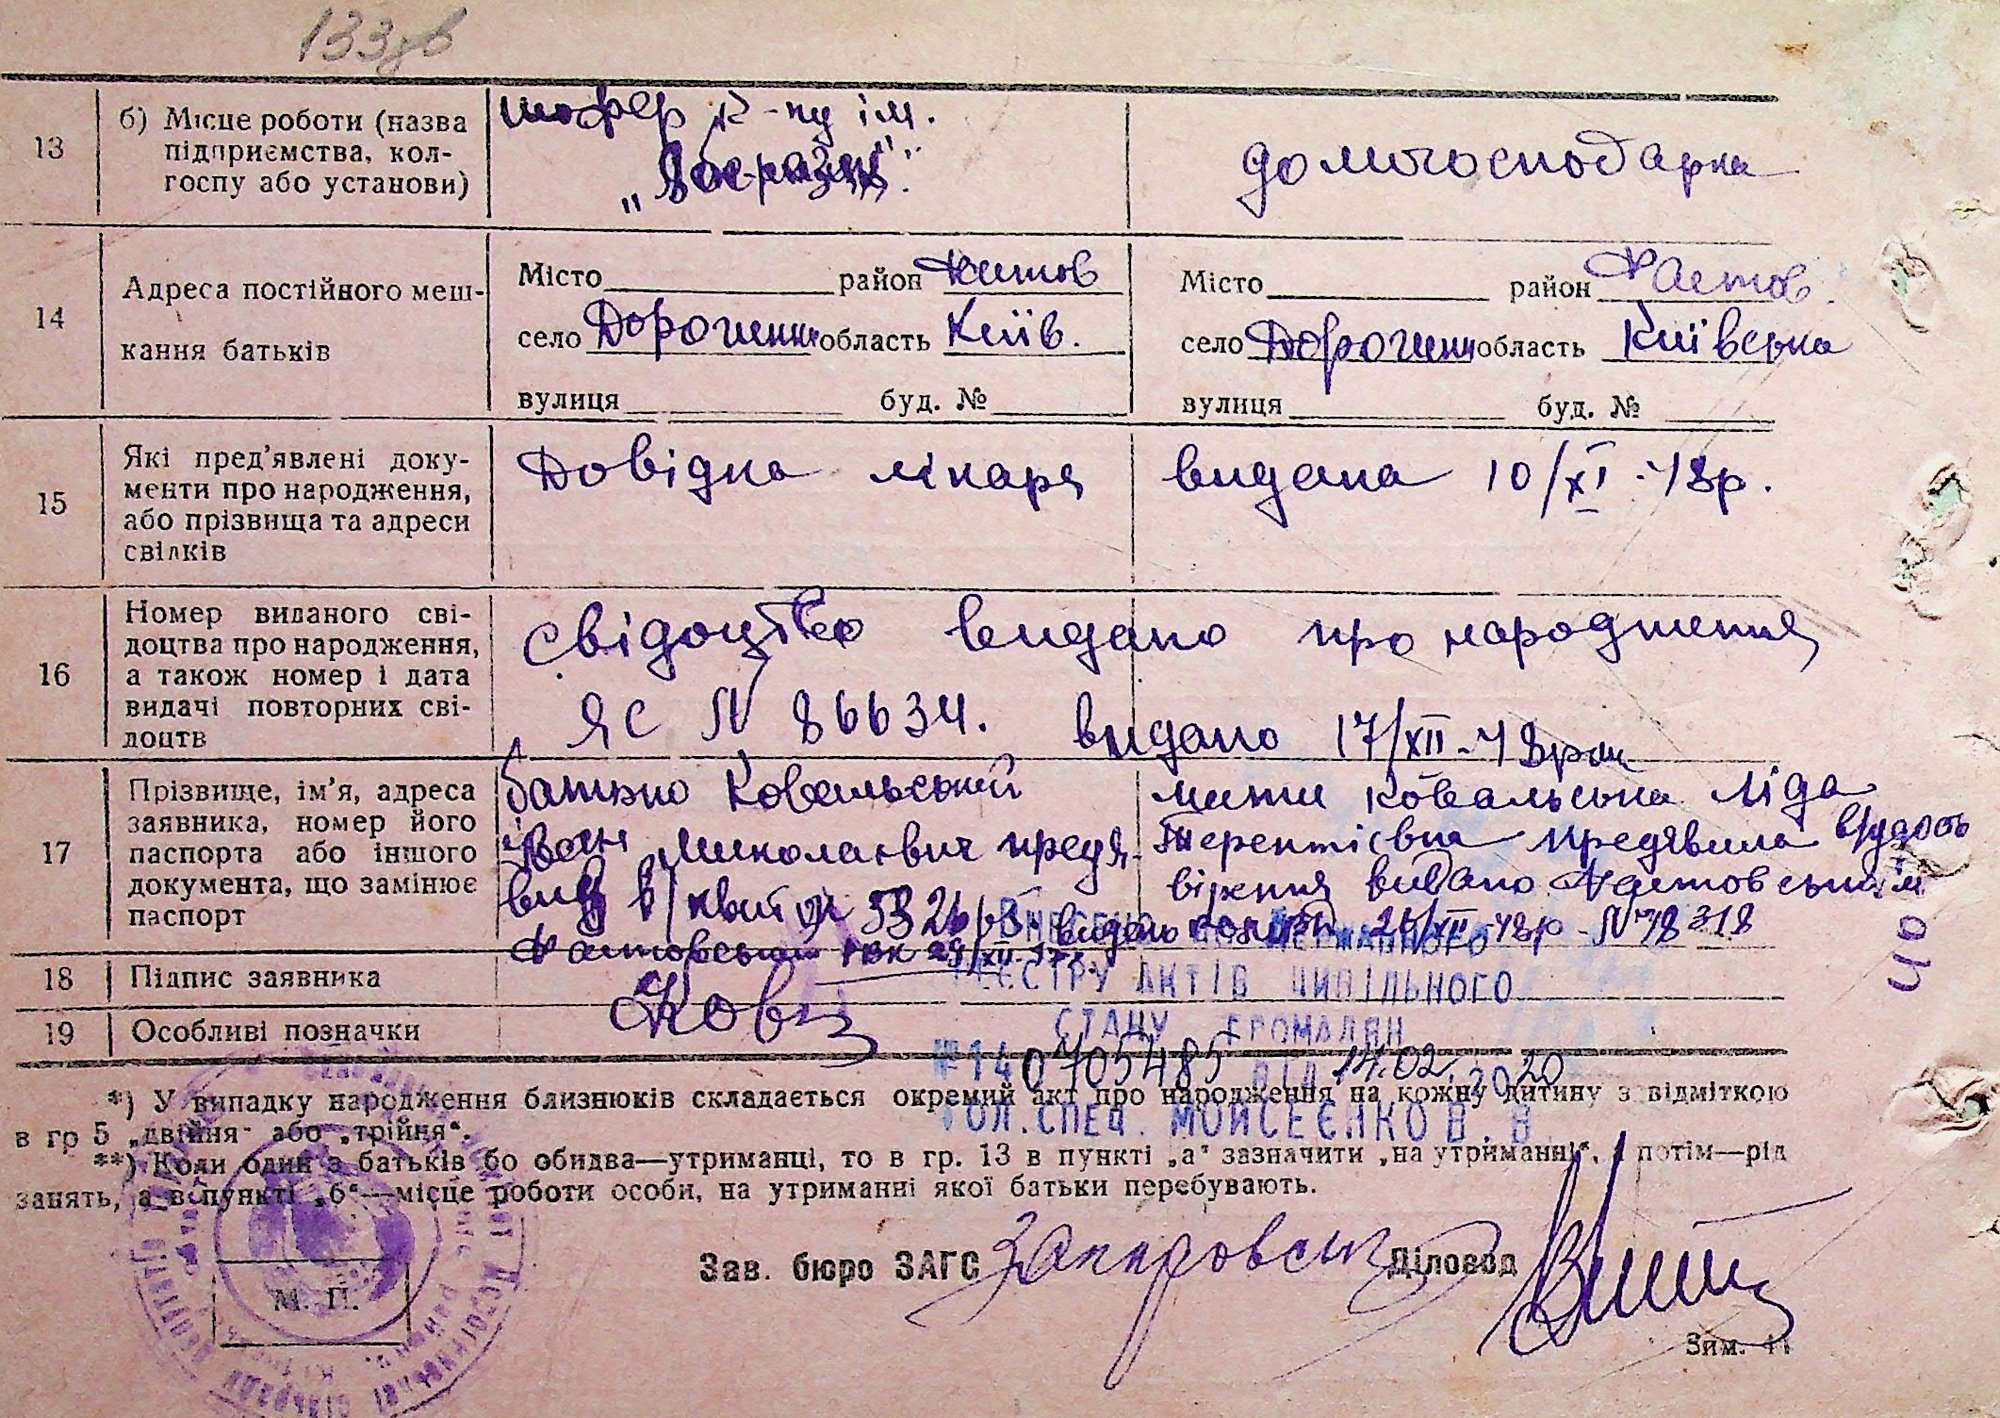 133
13
б) Місце роботи (назва
підприємства, кол-
госпу або установи)
шофер к-пу ім.
домогосподарка
14
Адреса постійного меш-
кання батьків
Місто район Фастов
село Дорогинки область Київ.
вулиця буд. №
Місто район Фастов.
село Дорогинки область Київська
вулиця буд. №
15
Які пред'явлені доку-
менти про народження,
або прізвища та адреси
свілків
Довідка лікаря видана 10/XI-48р.
16
Номер виданого сві-
доцтва про народження,
а також номер і дата
видачі повторних сві-
доцтв
свідоцтво видано про народження
ЯС N 86634. видано 17/XII-48р
17
Прізвище, ім'я, адреса
заявника, номер його
паспорта або іншого
документа, що замінює
паспорт
батько Ковальський
Іван Миколаевич предя-
вив в/квиток
Фастовським РВК 29/XII
мати Ковальська Ліда
Терентієвна предявила
видано Фастовським
26/XII-48р N 48318
ВНЕСЕНО ДО ДЕРЖАВНОГО
РЕЄСТРУ АКТІВ ЦИВІЛЬНОГО
СТАНУ ГРОМАДЯН
№140705485 ВІД 14.02.2020
ГОЛ.СПЕЦ. МОЙСЕЄНКО В.В.
18
Підпис заявника
19
Особливі позначки
40
*) У випадку народження близнюків складається окремий акт про народження на кожну дитину з відміткою
в гр 5 „двійня" або „трійня".
**) Коли один з батьків бо обидва—утриманці, то в гр. 13 в пункті „а" зазначити „на утриманні", а потім—рід
занять, а в пункті „б"—місце роботи особи, на утриманні якої батьки перебувають.
Зав. бюро ЗАГС
Діловод
М. П.
Зим. 11